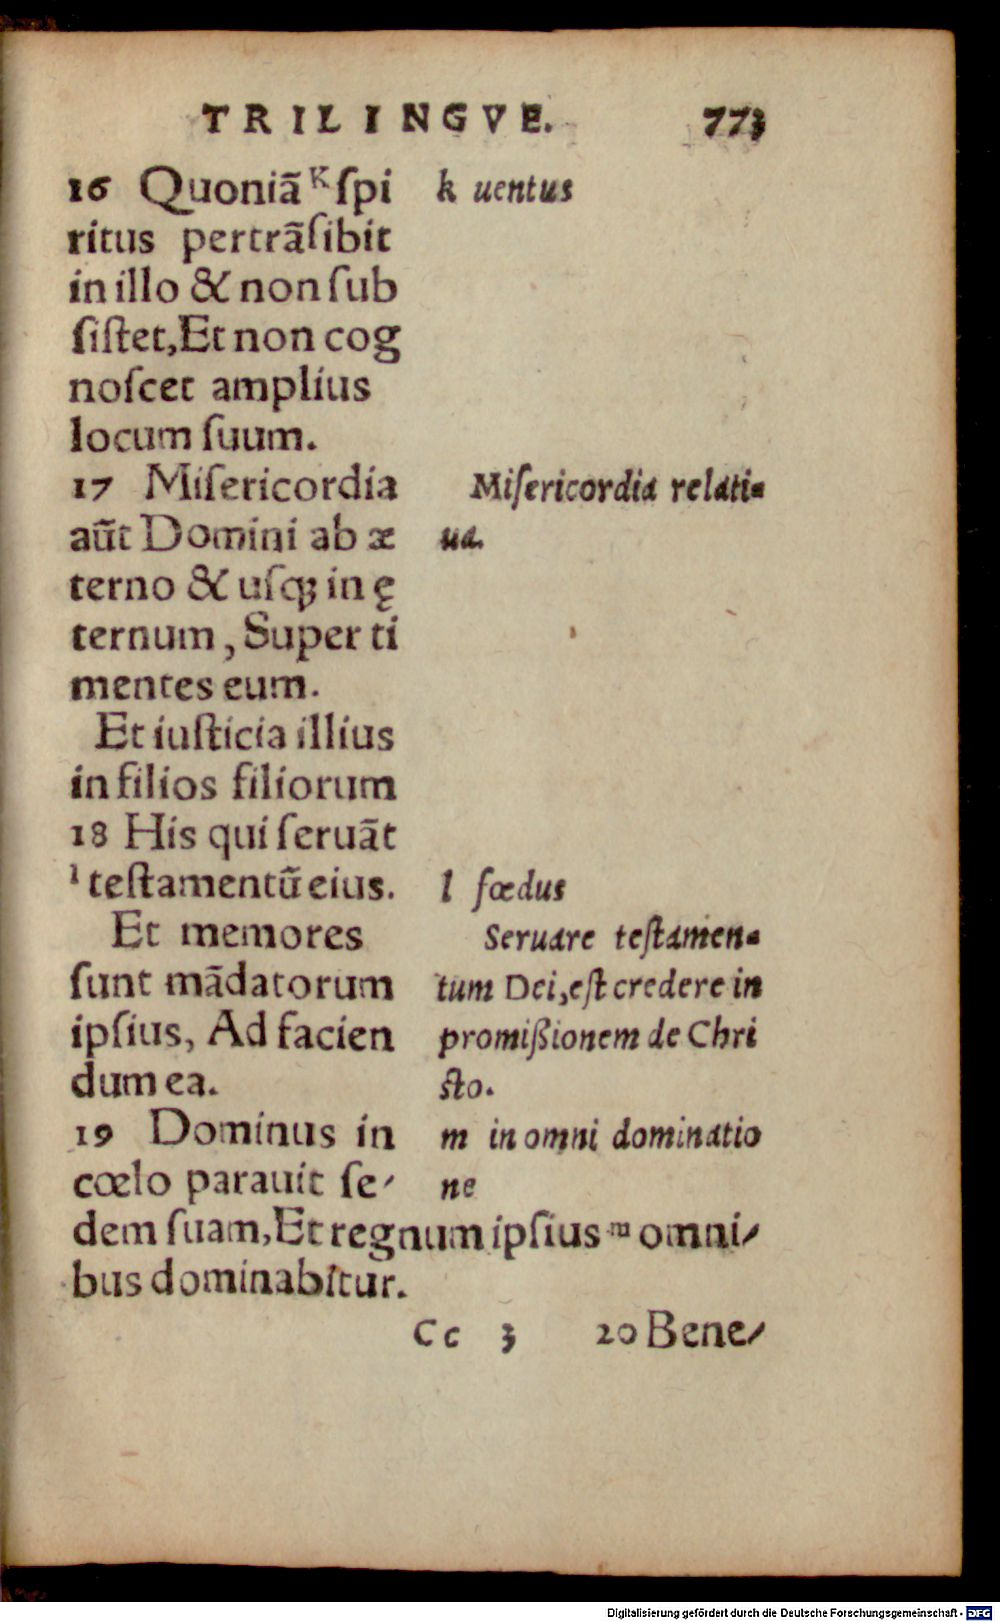 TRILINGVE. 773
16 Quoniā ᴷ ſpi
ritus pertrāſibit
in illo & non ſub
ſiſtet, Et non cog
noſcet amplius
locum ſuum.
17 Miſericordia
aūt Domini ab æ
terno & uſqꝫ in ę
ternum, Super ti
mentes eum.
Et iuſticia illius
in filios filiorum
18 His qui ſeruāt
ˡ teſtamentū eius.
Et memores
ſunt mādatorum
ipſius, Ad facien
dum ea.
19 Dominus in
cœlo parauit ſe-
dem ſuam, Et regnum ipſius ᵐ omni-
bus dominabitur.
k uentus
Miſericordia relati-
ua.
l fœdus
Seruare teſtamen-
tum Dei, eſt credere in
promißionem de Chri
ſto.
m in omni dominatio
ne
Cc 3 20 Bene-
Digitalisierung gefördert durch die Deutsche Forschungsgemeinschaft - DFG